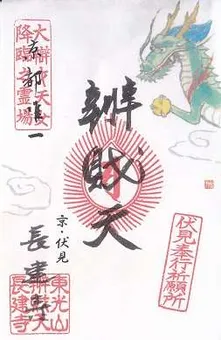 伏見奉行祈願所
辨財天
京・伏見
長建寺
京都第一
大辨才天女
降臨之霊場
東光山
辨財天
長建寺